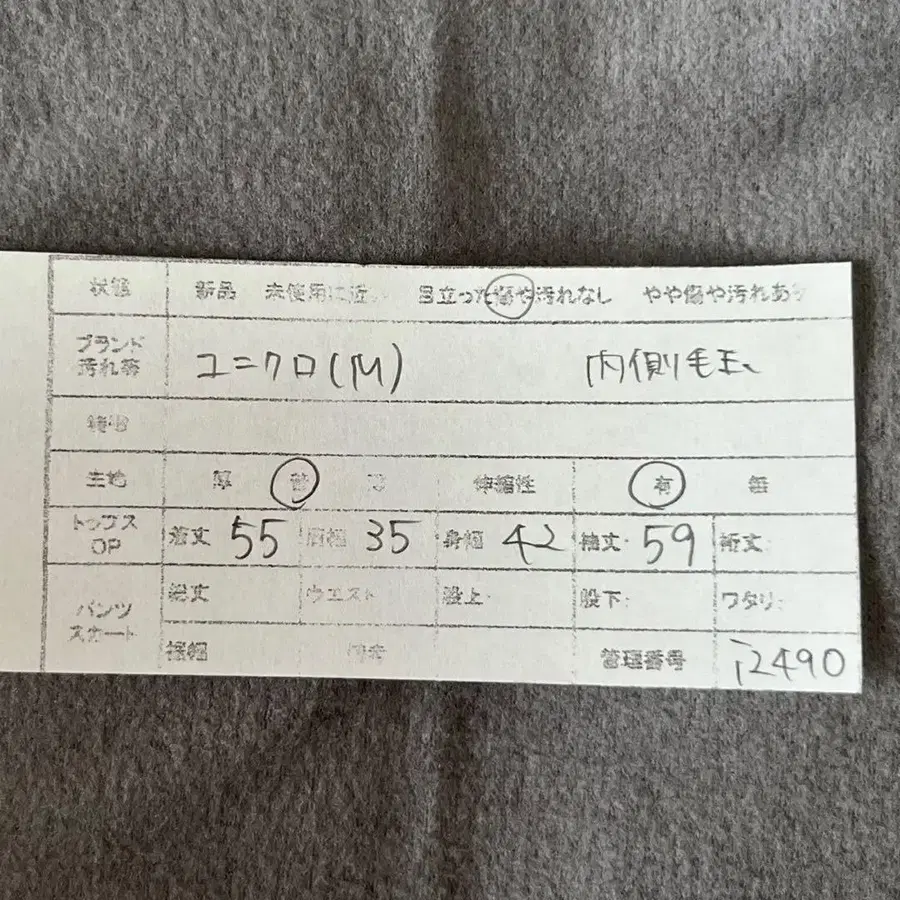 状態 新品 未使用に近い 目立った傷や汚れなし やや傷や汚れあり
ブランド 汚れ等 ユニクロ(M) 内側毛玉、
生地 厚 普 伸縮性 有 無
トップス OP 着丈 55 肩幅 35 身幅 42 袖丈: 59 裄丈:
パンツ スカート 総丈 ウエスト 股上: 股下: ワタリ:
裾幅 管理番号 i2490